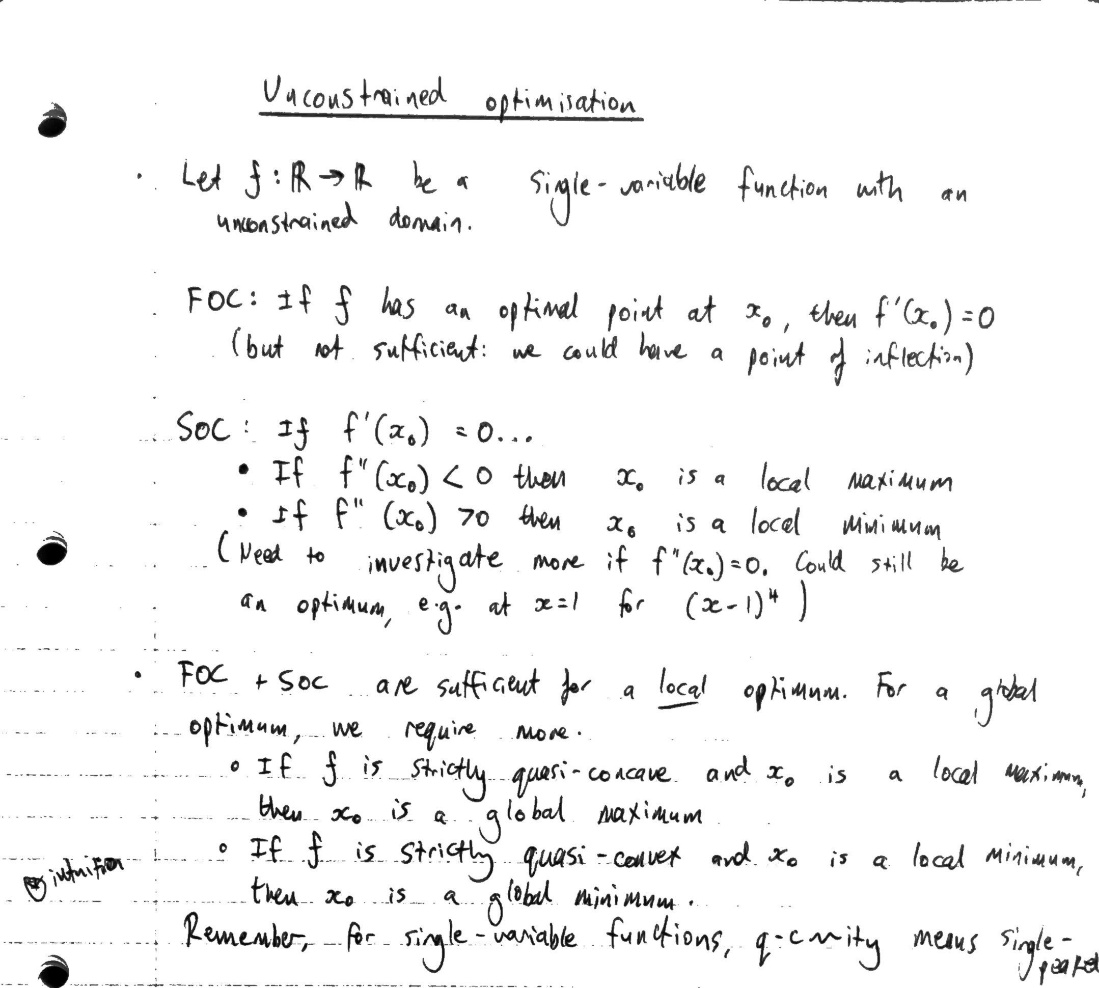 Unconstrained optimisation
• Let f : ℝ → ℝ be a single-variable function with an
unconstrained domain.
FOC: If f has an optimal point at x₀, then f'(x₀) = 0
(but not sufficient: we could have a point of inflection)
SOC: If f'(x₀) = 0...
• If f"(x₀) < 0 then x₀ is a local maximum
• If f"(x₀) > 0 then x₀ is a local minimum
(Need to investigate more if f"(x₀) = 0. Could still be
an optimum, e.g. at x=1 for (x-1)⁴)
• FOC + SOC are sufficient for a local optimum. For a global
optimum, we require more.
∘ If f is strictly quasi-concave and x₀ is a local maximum,
then x₀ is a global maximum
∘ If f is strictly quasi-convex and x₀ is a local minimum,
intuition
then x₀ is a global minimum.
Remember, for single-variable functions, means single-
peaked